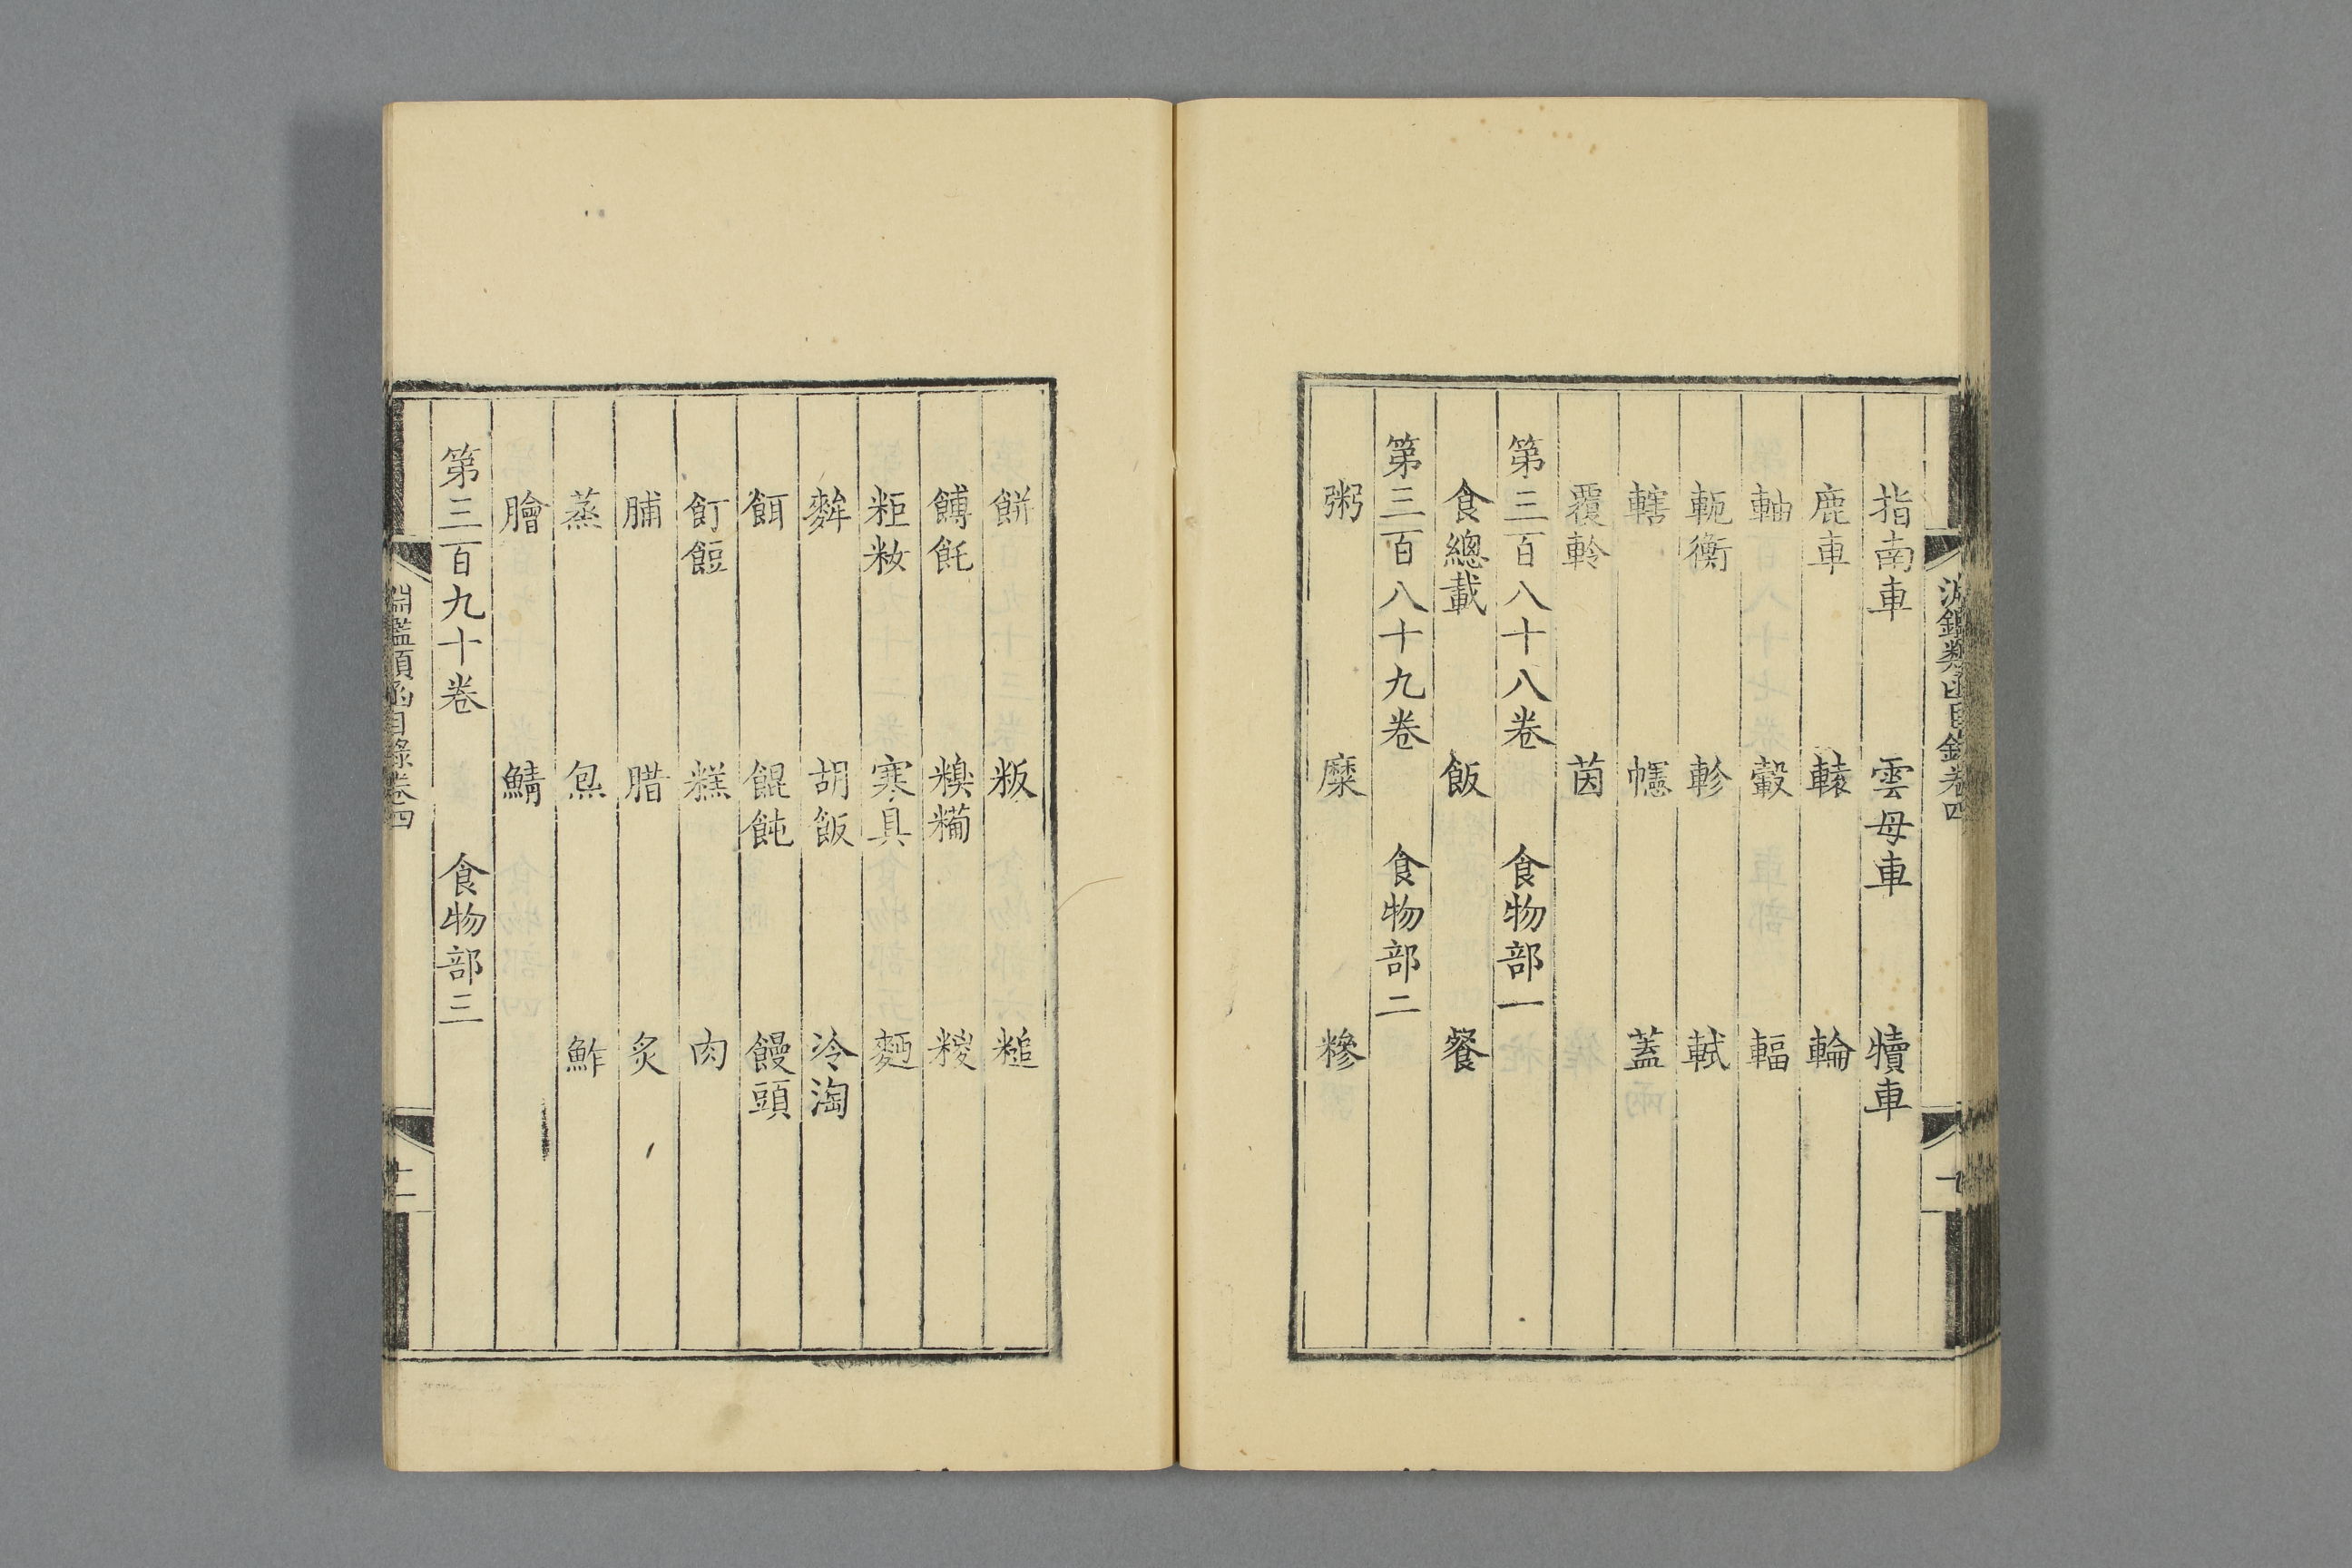 淵鑑類函目錄卷四
指南車 雲母車 犢車
鹿車 轅 輪
軸 轂 輻
軛衡 軫 軾
轄 幰 蓋
覆軨 茵
第三百八十八卷 食物部一
食總載 飯 餐
第三百八十九卷 食物部二
粥 糜 糝
餅 粄 䭔
餺飥 糗糒 糉
粔籹 寒具 麪
麰 胡飯 冷淘
餌 餛飩 饅頭
飣餖 糕 肉
脯 腊 炙
蒸 炰 鮓
膾 鯖
第三百九十卷 食物部三
淵鑑類函目錄卷四
十一